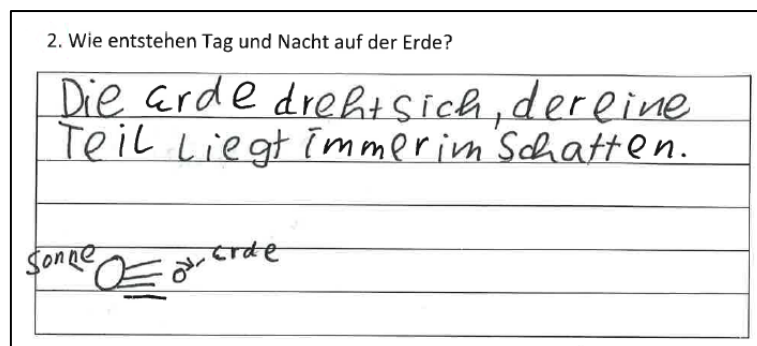 2. Wie entstehen Tag und Nacht auf der Erde?
Die Erde dreht sich, der eine
Teil liegt immer im Schatten.
Sonne Erde